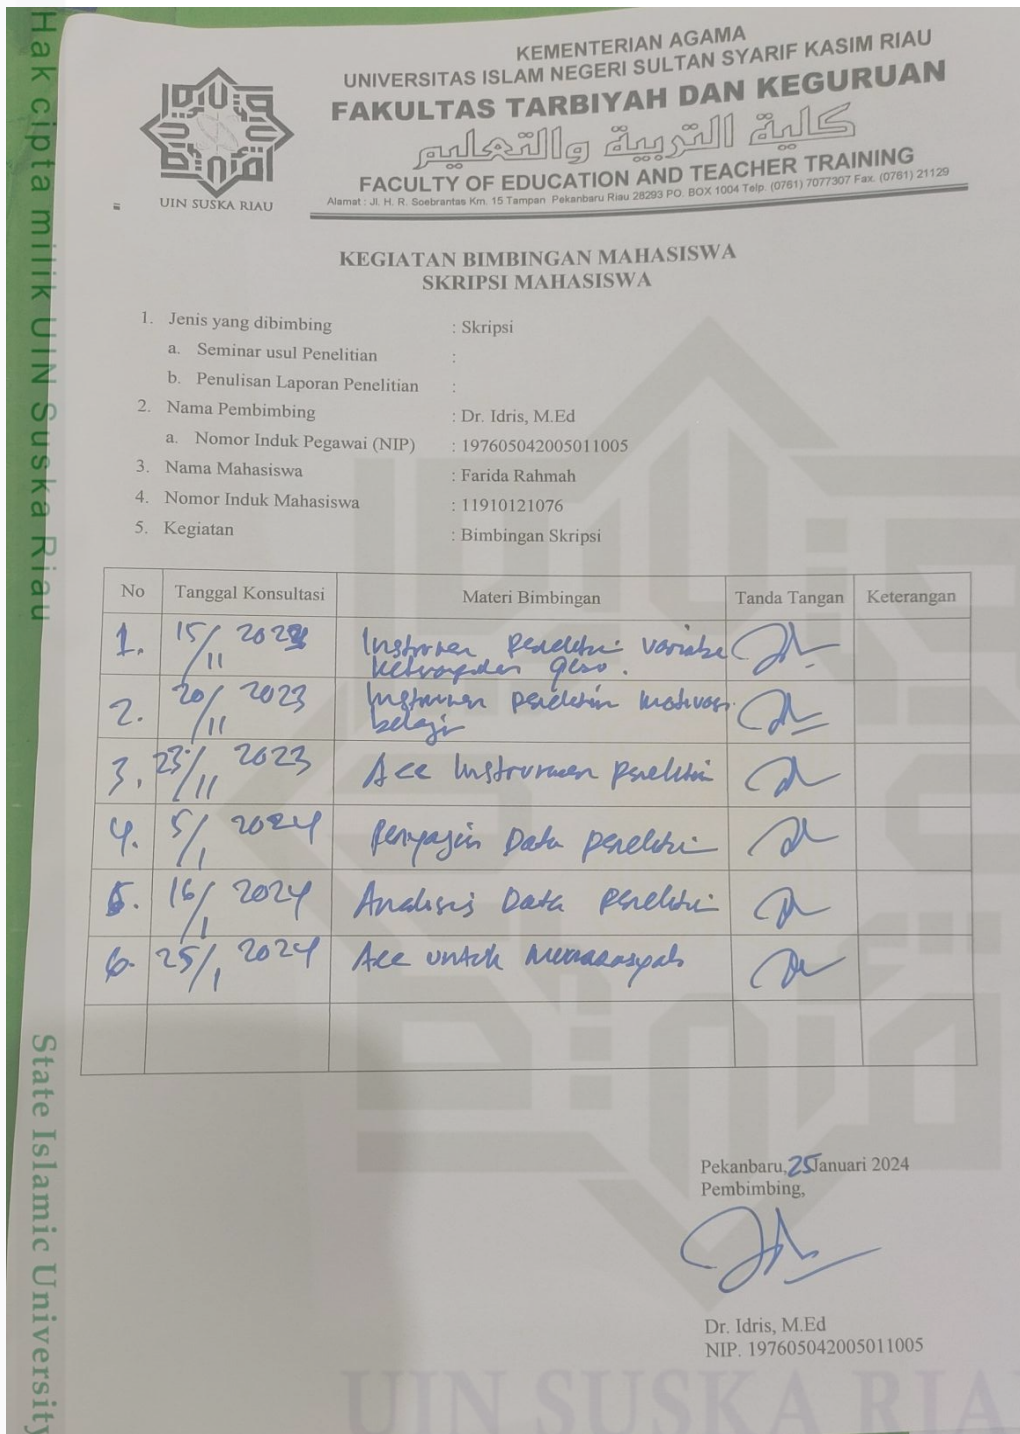 Hak cipta milik UIN Suska Riau
State Islamic University
UIN SUSKA RIAU
KEMENTERIAN AGAMA
UNIVERSITAS ISLAM NEGERI SULTAN SYARIF KASIM RIAU
FAKULTAS TARBIYAH DAN KEGURUAN
كلية التربية والتعليم
FACULTY OF EDUCATION AND TEACHER TRAINING
Alamat : Jl. H. R. Soebrantas Km. 15 Tampan Pekanbaru Riau 28293 PO. BOX 1004 Telp. (0761) 7077307 Fax. (0761) 21129
KEGIATAN BIMBINGAN MAHASISWA
SKRIPSI MAHASISWA
1. Jenis yang dibimbing : Skripsi
a. Seminar usul Penelitian :
b. Penulisan Laporan Penelitian :
2. Nama Pembimbing : Dr. Idris, M.Ed
a. Nomor Induk Pegawai (NIP) : 197605042005011005
3. Nama Mahasiswa : Farida Rahmah
4. Nomor Induk Mahasiswa : 11910121076
5. Kegiatan : Bimbingan Skripsi
No Tanggal Konsultasi Materi Bimbingan Tanda Tangan Keterangan
1. 15/11 2023 Instrumen penelitian variabel
2. 20/11 2023 Instrumen penelitian motivasi
belajar
3. 23/11 2023 Acc Instrumen penelitian
4. 5/1 2024 Penyajian Data penelitian
5. 16/1 2024 Analisis Data penelitian
6. 25/1 2024 Acc untuk
Pekanbaru, 25 Januari 2024
Pembimbing,
Dr. Idris, M.Ed
NIP. 197605042005011005
UIN SUSKA RIA